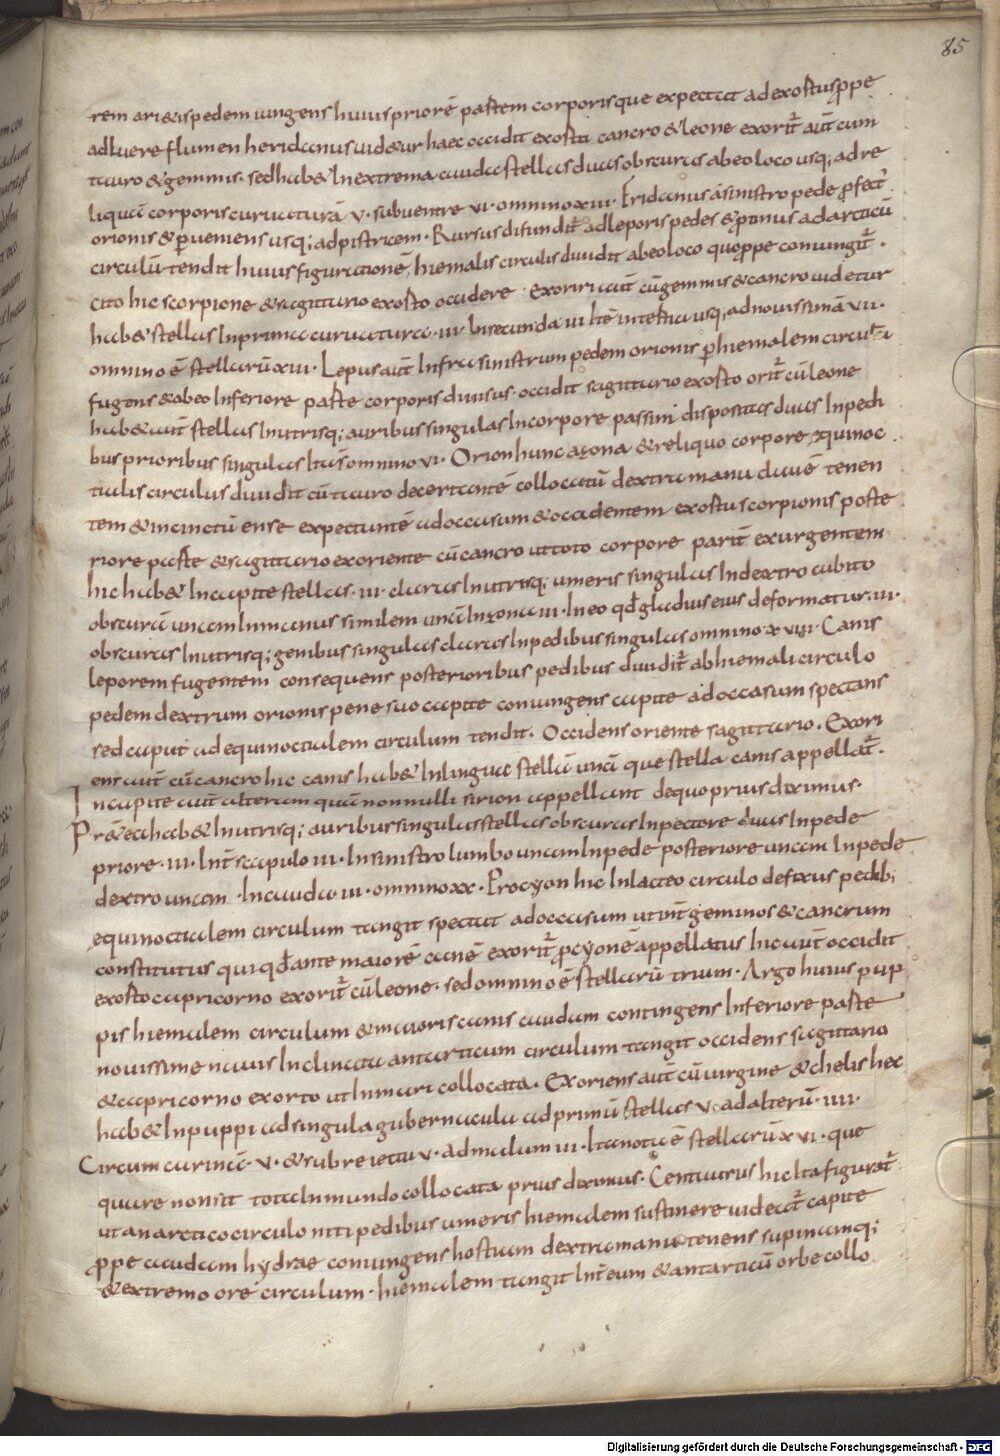 85
rem ari&is pedem iungens huius priorē partem corporis que expectat ad exortus ꝓpe
adluere flumen heridanus uid&ur haec occidit exorta cancro & leone exorit̄ aūt cum
tauro & geminis. sed hab& In extrema cauda stellas duas obscuras ab eo loco usq; ad re
liquā corporis curuaturā v. sub uentre vi. omnino xiii. Eridanus a sinistro pede ꝓfect̄
orionis & ꝑueniens usq; ad pistricem. Rursus difundit̄ ad leporis pedes & ꝓtinus ad arcticū
circulū tendit huius figurationē hiemalis circulis diuidit ab eo loco quo ꝓpe coniungit̄.
cito hic scorpione & sagittario exorto occidere. Exoriri aūt cū geminis & cancro uidetur
hab& stellas In prima curuatura. iii. In secunda iii Itē in tertia usq; ad nouissimā vii.
omnino ē stellarū xiii. Lepus aūt Infra sinistrum pedem orionis ꝑ hiemalem circulū
fugiens & ab eo Inferiore parte corporis diuisus. occidit sagittario exorto orit̄ cū leone
hab& aūt stellas In utrisq; auribus singulas In corpore passim dispositas duas In pedi
bus prioribus singulas Ita s̄ omnino vi. Orion hunc a zona & reliquo corpore equinoc
tialis circulus diuidit cū tauro decertantē collocatū dextra manu clauē tenen
tem & incinctū ense expectantē ad occasum & occidentem exortu scorpionis poste
riore parte & sagittario exoriente cū cancro ut toto corpore parit̄ exurgentem
hic hab& In capite stellas. iii. claras In utrisq; umeris singulas In dextro cubito
obscurā unam In manus similem unā In zona iii. In eo qđ gladius eius deformatur. iii.
obscuras In utrisq; genibus singulas claras In pedibus singulas omnino xviii. Canis
leporem fugientem consequens posterioribus pedibus diuidit̄ ab hiemali circulo
pedem dextrum orionis pene suo capite coniungens capite ad occasum spectans
sed caput ad equinoctialem circulum tendit. Occidens oriente sagittario. Exori
ens aūt cū cancro hic canis hab& In lingua stellā unā que stella canis appellat̄.
In capite aūt alteram quā nonnulli sirion appellant de quo prius diximus.
Pr&ea hab& In utrisq; auribus singulas stellas obscuras In pectore duas In pede
priore. iii. Int̄ scapulo iii. In sinistro lumbo unam In pede posteriore unam In pede
dextro unam. In cauda iii. omnino xx. Procyon hic In lacteo circulo defixus pedib;
equinoctialem circulum tangit spectat ad occasum ut int̄ geminos & cancrum
constitutus qui qđ ante maiorē canē exorit̄ ꝓcyonē appellatus hic aūt occidit
exorto capricorno exorit̄ cū leone. sed omnino ē stellarū trium. Argo huius pup
pis hiemalem circulum & maioris canis caudam contingens Inferiore parte
nouissime nauis Inclinata antarticum circulum tangit occidens sagittario
& capricorno exorto ut In mari collocata. Exoriens aūt cū uirgine & chelis hec
hab& In puppi ad singula gubernacula ad primū stellas v. ad alterū. iiii.
Circum carinā. v. & sub reiectu v. ad malum iii. Ita tota ē stellarū xxvi. que
quare non sit tota In mundo collocata prius diximus. Centaurus hic Ita figurat̄
ut anarctico circulo niti pedibus umeris hiemalem sustinere uideat̄ capite
ꝓpe caudam hydrae coniungens hostiam dextra manu tenens supinamq;
& extremo ore circulum. hiemalem tangit Int̄ eum & antarticū orbe collo
Digitalisierung gefördert durch die Deutsche Forschungsgemeinschaft - DFG